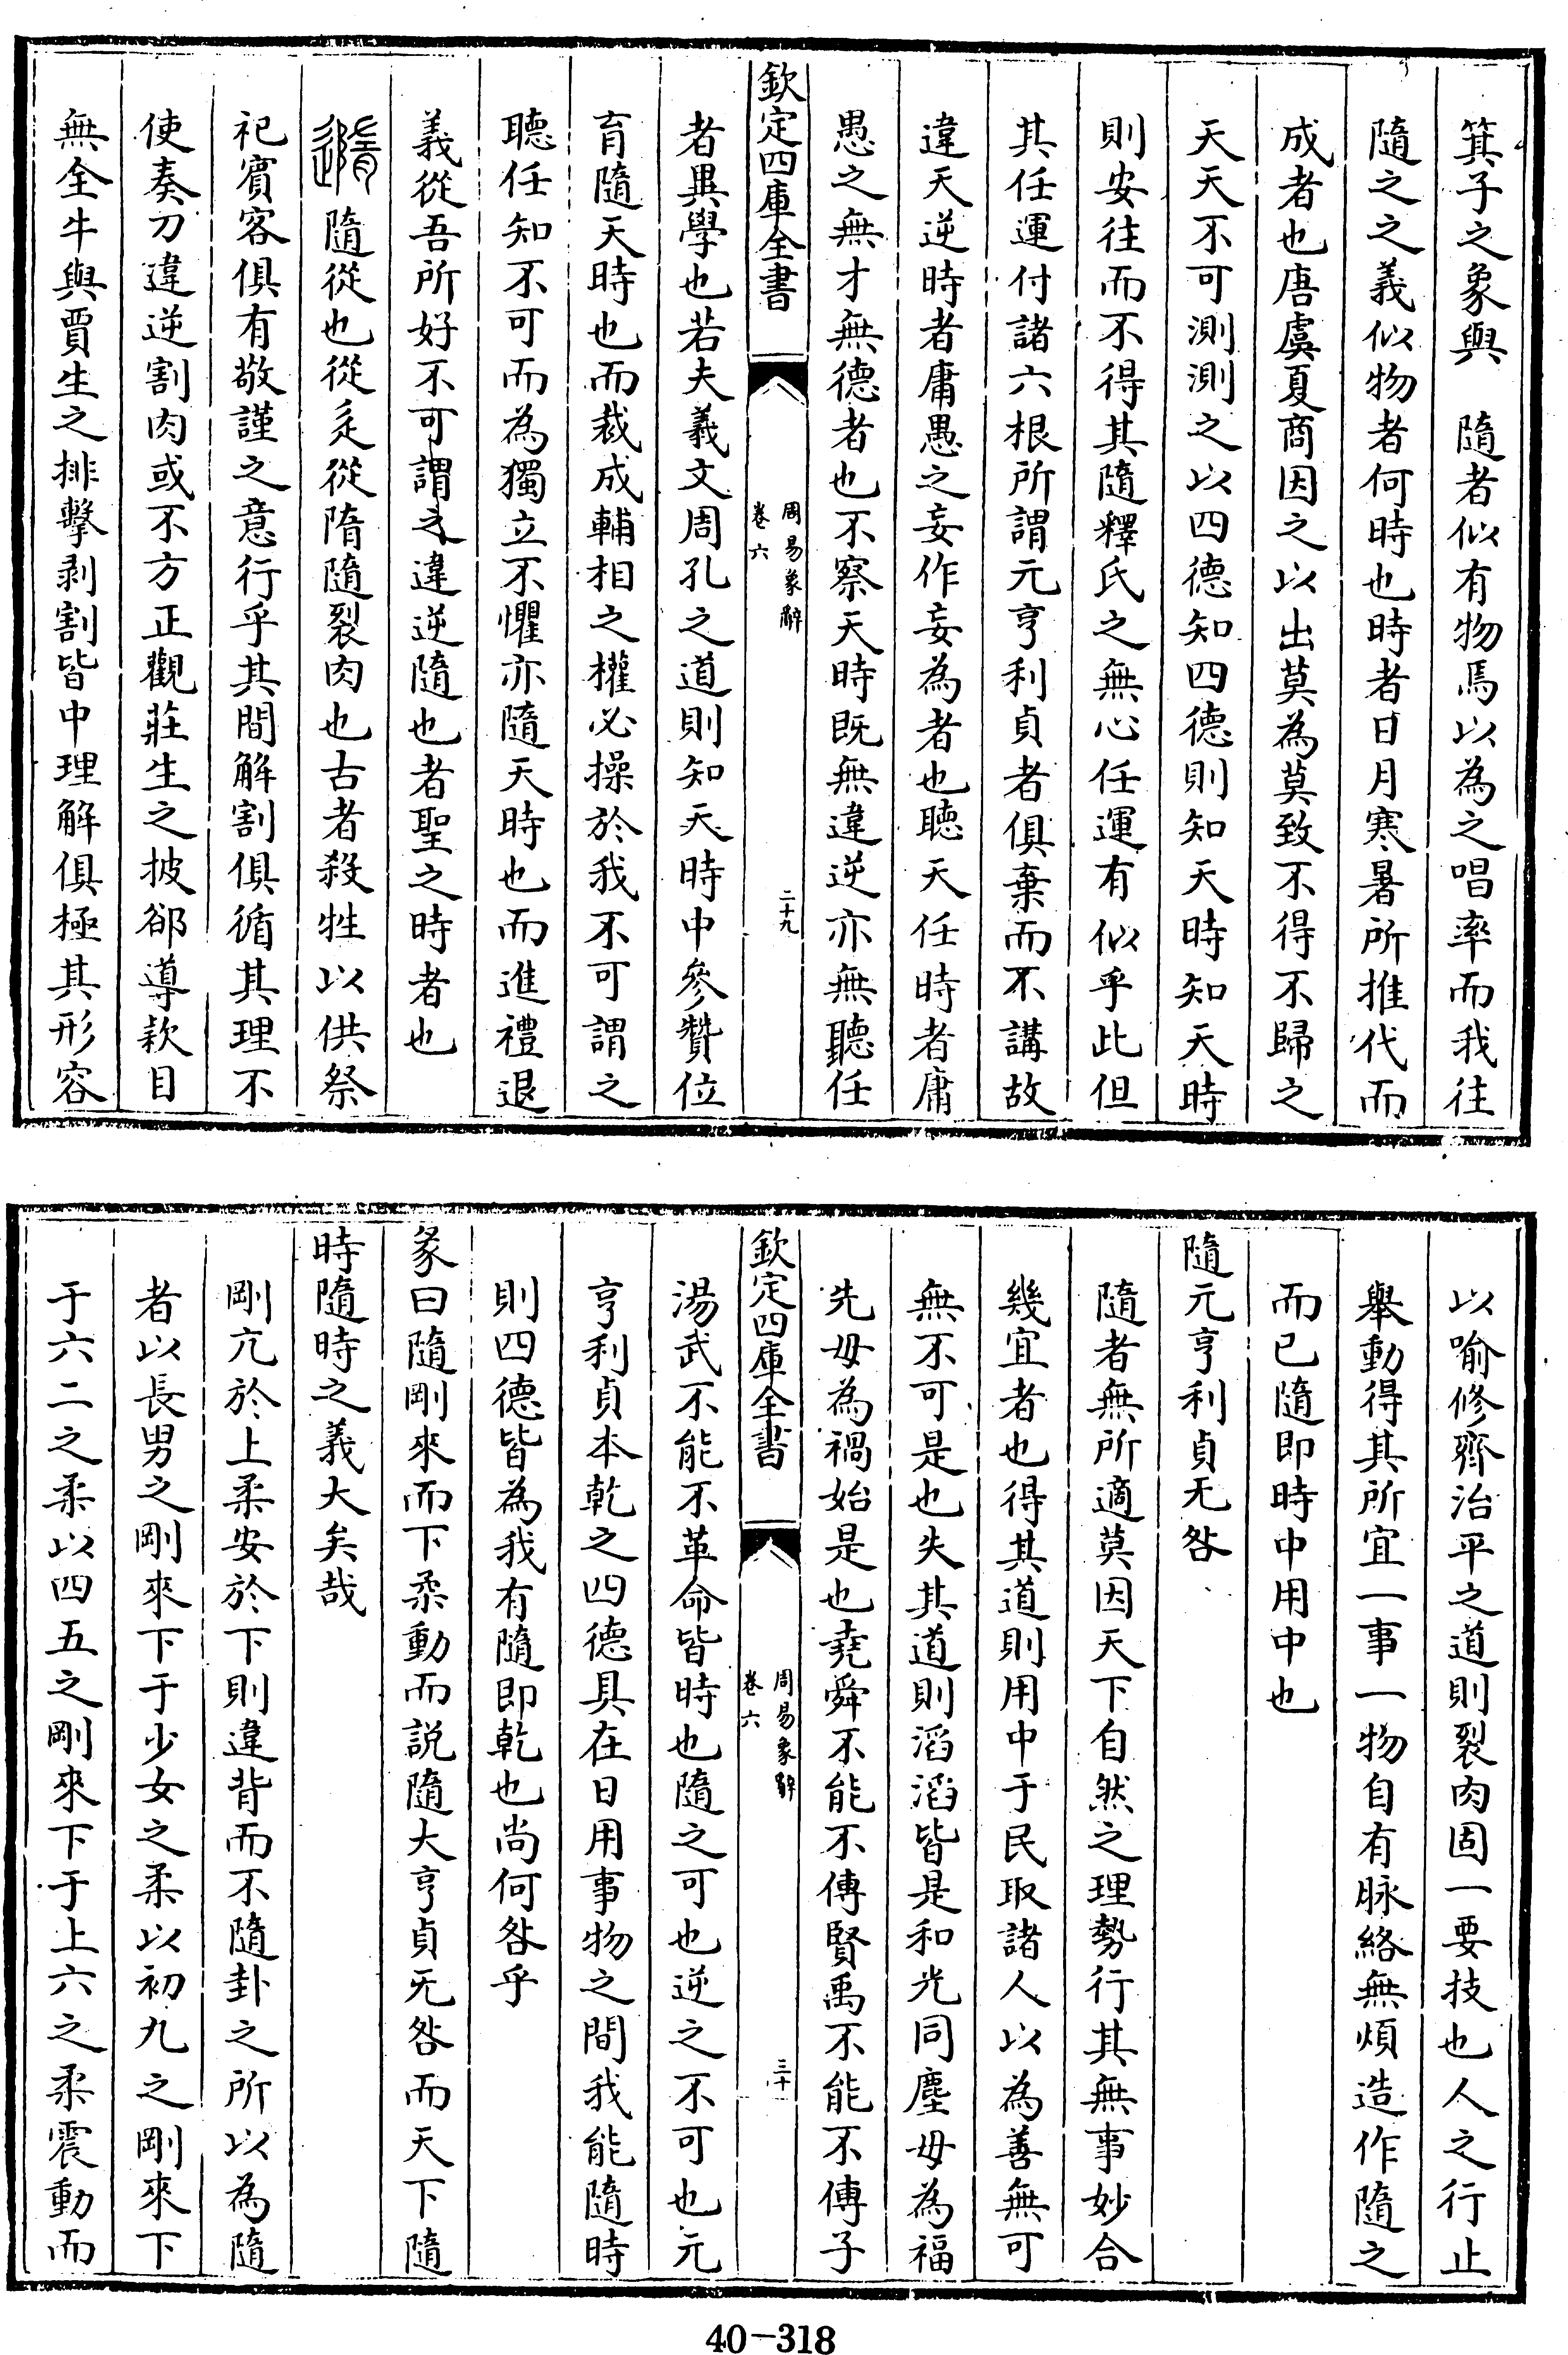 箕子之象與　隨者似有物焉以為之唱率而我往
隨之之義似物者何時也時者日月寒暑所推代而
成者也唐虞夏商因之以出莫為莫致不得不歸之
天天不可測測之以四德知四德則知天時知天時
則安往而不得其隨釋氏之無心任運有似乎此但
其任運付諸六根所謂元亨利貞者俱棄而不講故
違天逆時者庸愚之妄作妄為者也聽天任時者庸
愚之無才無德者也不察天時既無違逆亦無聽任
欽定四庫全書
周易象辭
卷六
二十九
者異學也若夫羲文周孔之道則知天時中參贊位
育隨天時也而裁成輔相之權必操於我不可謂之
聽任知不可而為獨立不懼亦隨天時也而進禮退
義從吾所好不可謂之違逆隨也者聖之時者也
隨從也從辵從隋隨裂肉也古者殺牲以供祭
祀賓客俱有敬謹之意行乎其間解割俱循其理不
使奏刀違逆割肉或不方正觀莊生之披郤導款目
無全牛與賈生之排擊剥割皆中理解俱極其形容
以喻修齊治平之道則裂肉固一要技也人之行止
舉動得其所宜一事一物自有脉絡無煩造作隨之
而已隨即時中用中也
隨元亨利貞无咎
隨者無所適莫因天下自然之理勢行其無事妙合
幾宜者也得其道則用中于民取諸人以為善無可
無不可是也失其道則滔滔皆是和光同塵毋為福
先毋為禍始是也堯舜不能不傳賢禹不能不傳子
欽定四庫全書
周易象辭
卷六
三十
湯武不能不革命皆時也隨之可也逆之不可也元
亨利貞本乾之四德具在日用事物之間我能隨時
則四德皆為我有隨即乾也尚何咎乎
彖曰隨剛來而下柔動而説隨大亨貞无咎而天下隨
時隨時之義大矣哉
剛亢於上柔安於下則違背而不隨卦之所以為隨
者以長男之剛來下于少女之柔以初九之剛來下
于六二之柔以四五之剛來下于上六之柔震動而
40-318